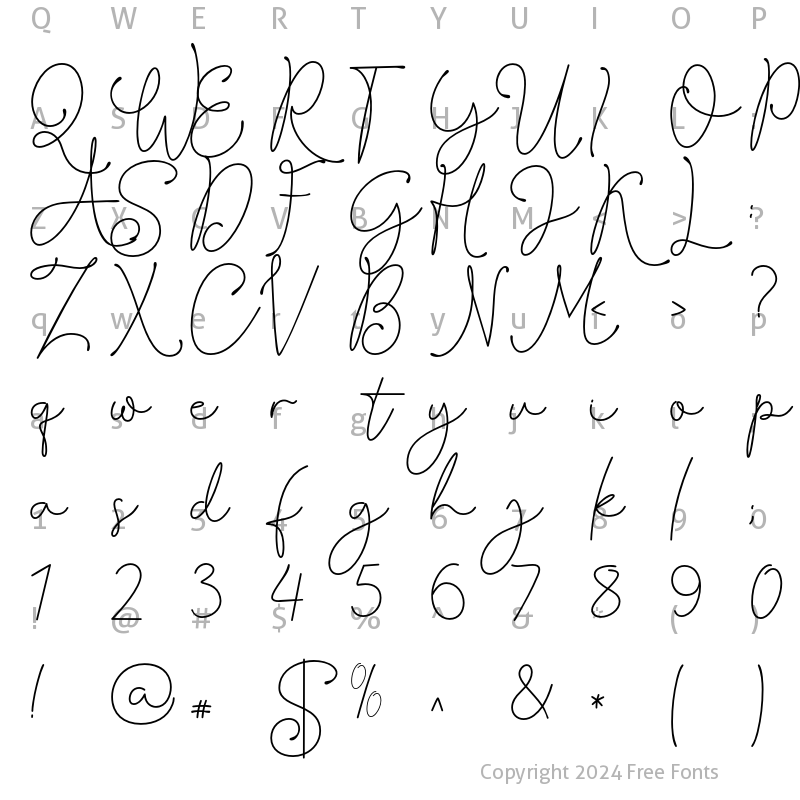 Q W E R T Y U I O P
Q W E R T Y U I O P
A S D F G H J K L :
A S D F G H J K L :
Z X C V B N M < > ?
Z X C V B N M < > ?
q w e r t y u i o p
q w e r t y u i o p
a s d f g h j k l ;
a s d f g h j k l ;
1 2 3 4 5 6 7 8 9 0
1 2 3 4 5 6 7 8 9 0
! @ # $ % ^ & * ( )
! @ # $ % ^ & * ( )
Copyright 2024 Free Fonts